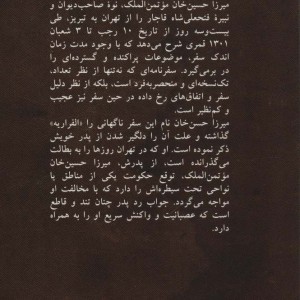 میرزا حسین‌خان مؤتمن‌الملک، نوهٔ صاحب‌دیوان و
نبیرهٔ فتحعلی‌شاه قاجار را از تهران به تبریز، طی
بیست‌وسه روز از تاریخ ۱۰ رجب تا ۳ شعبان
۱۳۰۱ قمری شرح می‌دهد که با وجود مدت زمان
اندک سفر، موضوعات پراکنده و گسترده‌ای را
در برمی‌گیرد. سفرنامه‌ای که نه‌تنها از نظر تعداد،
تک‌نسخه‌ای و منحصربه‌فرد است، بلکه از نظر دلیل
سفر و اتفاق‌های رخ داده در حین سفر نیز عجیب
و کم‌نظیر است.
میرزا حسن‌خان نام این سفر ناگهانی را «الفراریه»
گذاشته و علت آن را دلگیر شدن از پدر خویش
ذکر نموده است. او که در تهران روزها را به بطالت
می‌گذرانده است، از پدرش، میرزا حسین‌خان
مؤتمن‌الملک، توقع حکومت یکی از مناطق یا
نواحی تحت سیطره‌اش را دارد که با مخالفت او
مواجه می‌گردد. جواب رد پدر چنان تند و قاطع
است که عصبانیت و واکنش سریع او را به همراه
دارد.